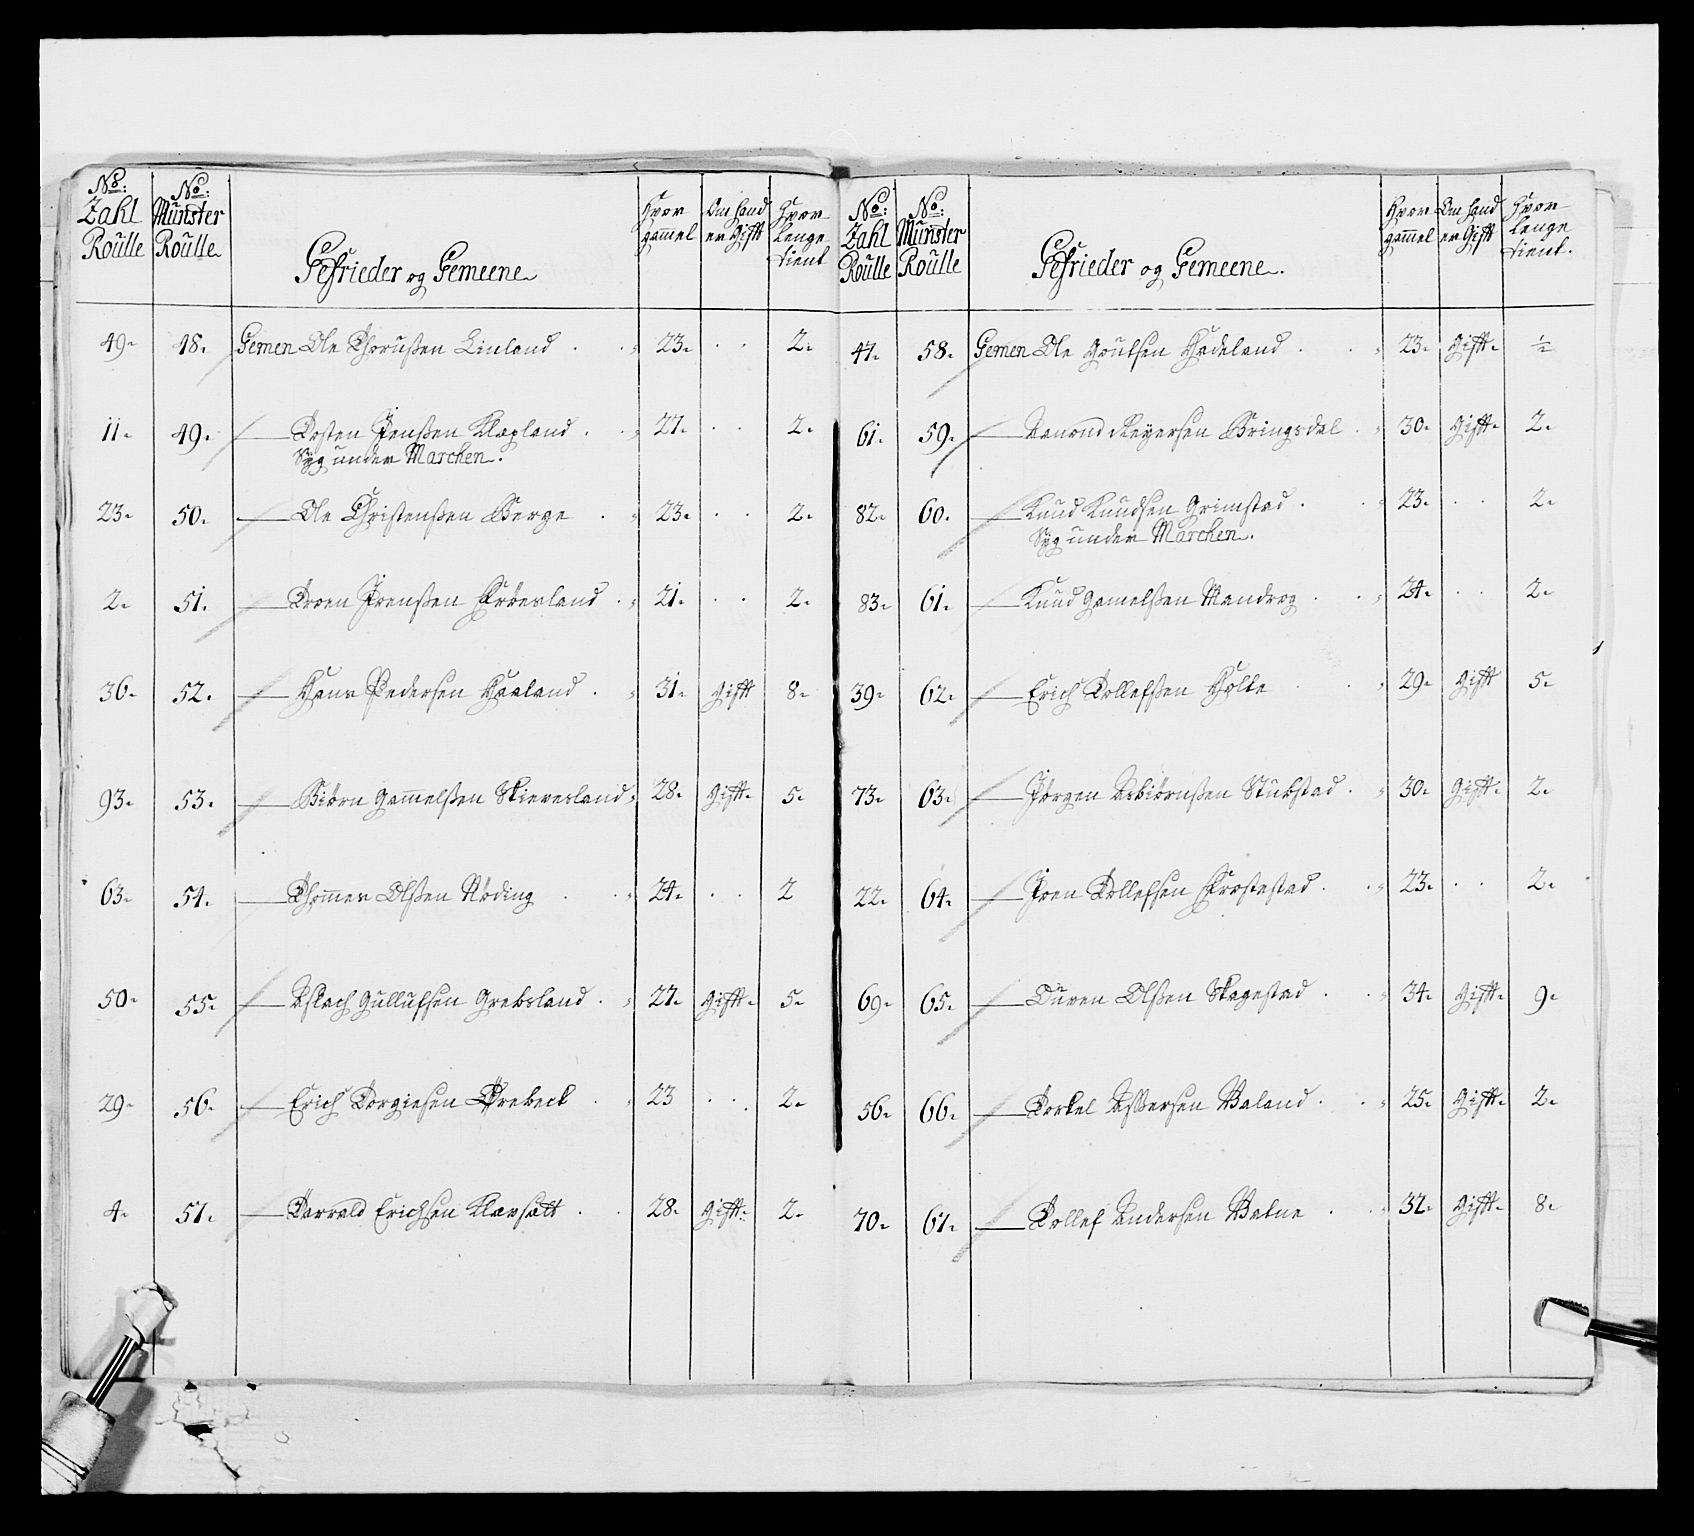 No: Zahl Roulle | No: Münster Roulle | Gefrieder og Gemeene | Hvor gammel | Om hand er Gift | Hvor lenge tient
49. 48. Gemen Ole Thorußen Linland 23. 2.
11. 49. Tosten Jenßen Klepland 27. 2.
Syg under Marchen.
23. 50. Ole Christenßen Berge 23. 2.
2. 51. Troen Jrenßen Frörsland 21. 2.
36. 52. Hans Pedersen Haaland 31. Gift 8.
93. 53. Biörn Gammelßen Skieresland 28. Gift. 5.
63. 54. Thommes Olßen Röding 24. 2
50. 55. Aslach Gullufsen Grebsland 27. Gift. 5.
29. 56. Erich Torgiesen Örebeck 23 2.
4. 57. Tarrald Erichsen Klevsatt 28. Gift. 2.
No: Zahl Roulle | No: Münster Roulle | Gefrieder og Gemeene. | Hvor gammel | Om hand er Gift | Hvor lenge tient.
47. 58. Gemen Ole Goutsen Hadeland 23. Gift. ½
61. 59. Aanond Reyersen Bringsdal 30. Gift. 2.
82. 60. Knud Knudsen Grimstad 23. 2.
Syg under Marchen.
83. 61. Knud Gamelßen Mandrog 24. 2.
39. 62. Erich Tollefßen Holte 29. Gift 5.
73. 63. Jörgen Asbiörnßen Stubstad 30. Gift. 2.
22. 64. Jren Tollefsen Frostestad 23. 2.
69. 65. Ouven Olßen Skagestad 34. Gift. 9.
56. 66. Torkel Aßersen Waland 25. Gift. 2.
70. 67. Tollef Andersen Watne 32. Gift. 8.